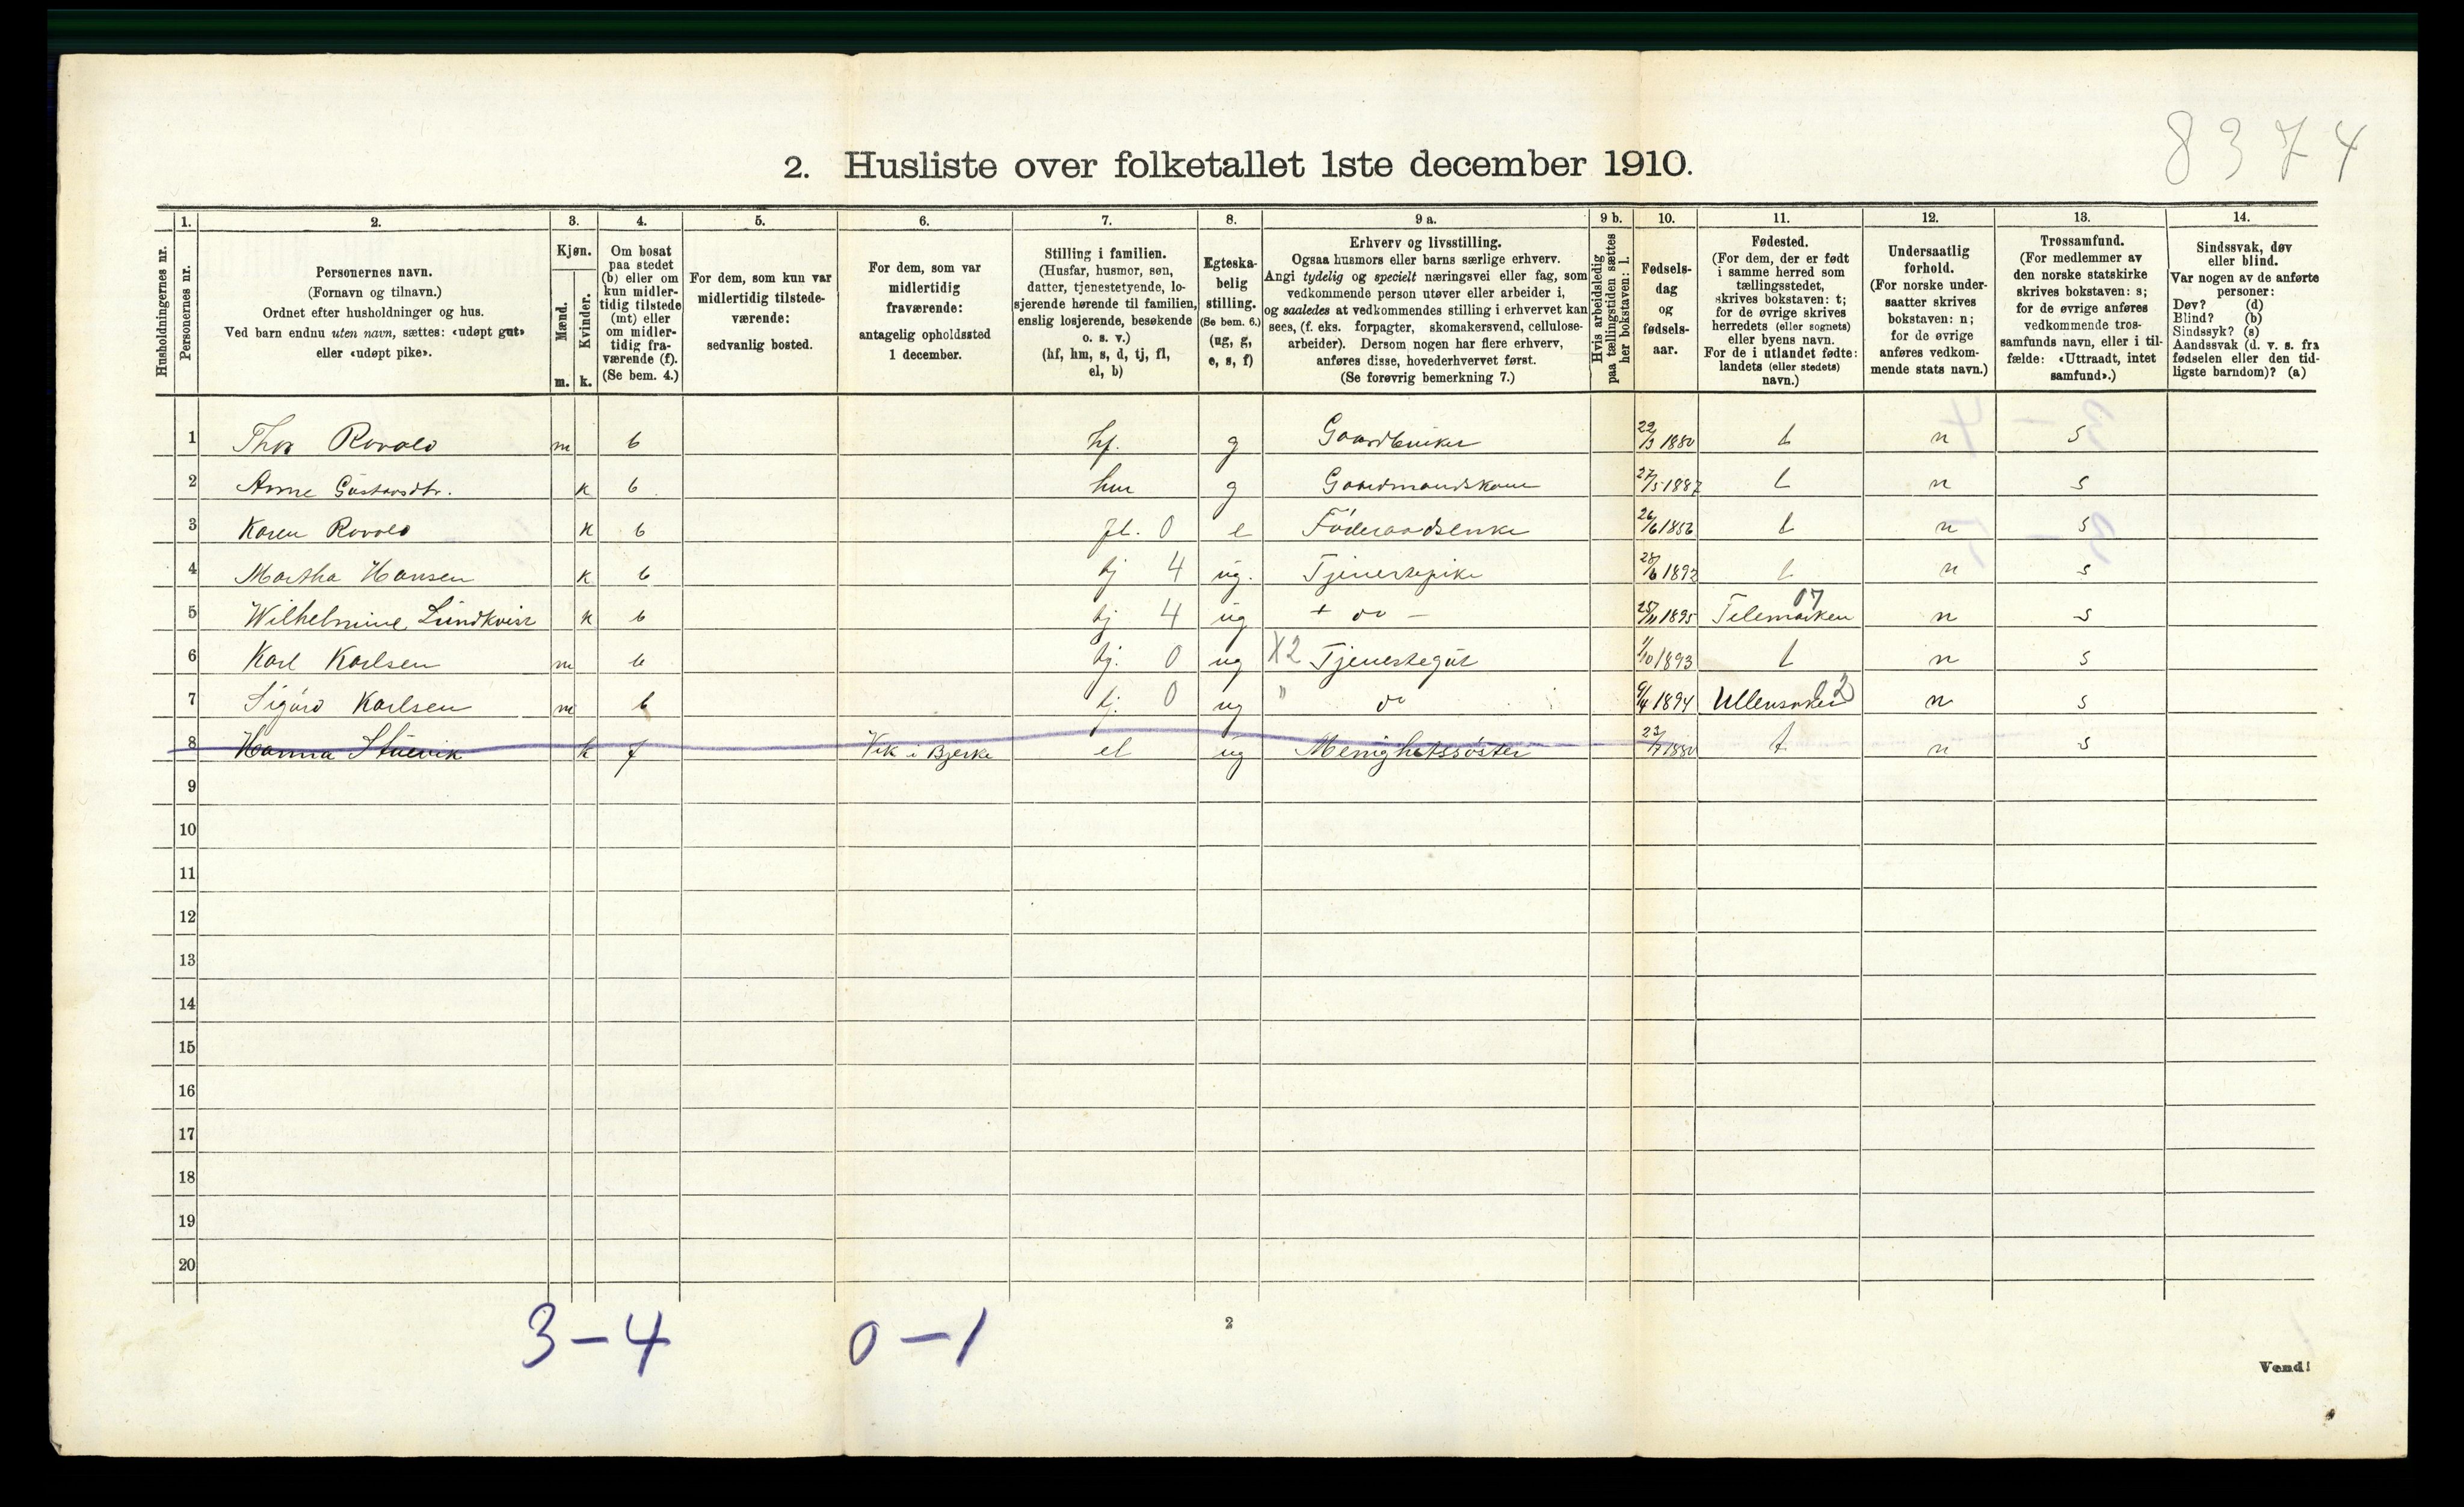 8374
2. Husliste over folketallet 1ste december 1910.
1. 2. 3. 4. 5. 6. 7. 8. 9 a. 9 b. 10. 11. 12. 13. 14.
Husholdningernes nr.
Personernes nr.
Personernes navn.
(Fornavn og tilnavn.)
Ordnet efter husholdninger og hus.
Ved barn endnu uten navn, sættes: «udøpt gut»
eller «udøpt pike».
Kjøn.
Mænd.
Kvinder.
m. k.
Om bosat
paa stedet
(b) eller om
kun midler-
tidig tilstede
(mt) eller
om midler-
tidig fra-
værende (f).
(Se bem. 4.)
For dem, som kun var
midlertidig tilstede-
værende:
sedvanlig bosted.
For dem, som var
midlertidig
fraværende:
antagelig opholdssted
1 december.
Stilling i familien.
(Husfar, husmor, søn,
datter, tjenestetyende, lo-
sjerende hørende til familien,
enslig losjerende, besøkende
o. s. v.)
(hf, hm, s, d, tj, fl,
el, b)
Egteska-
belig
stilling.
(Se bem. 6.)
(ug, g,
e, s, f)
Erhverv og livsstilling.
Ogsaa husmors eller barns særlige erhverv.
Angi tydelig og specielt næringsvei eller fag, som
vedkommende person utøver eller arbeider i,
og saaledes at vedkommendes stilling i erhvervet kan
sees, (f. eks. forpagter, skomakersvend, cellulose-
arbeider). Dersom nogen har flere erhverv,
anføres disse, hovederhvervet først.
(Se forøvrig bemerkning 7.)
Hvis arbeidsledig
paa tællingstiden sættes
her bokstaven: l.
Fødsels-
dag
og
fødsels-
aar.
Fødested.
(For dem, der er født
i samme herred som
tællingsstedet,
skrives bokstaven: t;
for de øvrige skrives
herredets (eller sognets)
eller byens navn.
For de i utlandet fødte:
landets (eller stedets)
navn.)
Undersaatlig
forhold.
(For norske under-
saatter skrives
bokstaven: n;
for de øvrige
anføres vedkom-
mende stats navn.)
Trossamfund.
(For medlemmer av
den norske statskirke
skrives bokstaven: s;
for de øvrige anføres
vedkommende tros-
samfunds navn, eller i til-
fælde: «Uttraadt, intet
samfund».)
Sindssvak, døv
eller blind.
Var nogen av de anførte
personer:
Døv? (d)
Blind? (b)
Sindssyk? (s)
Aandssvak (d. v. s. fra
fødselen eller den tid-
ligste barndom)? (a)
1 Thor Rovold m b hf. g Gaardbruker 22/3 1880 t n s
2 Anne Gustavsdtr. k b hm g Gaardmandskone 27/5 1887 t n s
3 Karen Rovold k b fl. 0 e Föderaadsenke 26/6 1856 t n s
4 Martha Hansen k b tj 4 ug. Tjenestepike 28/6 1892 t n s
5 Wilhelmine Lundkvist k b tj 4 ug + do - 25/11 1895 Telemarken 07 n s
6 Karl Karlsen m b tj. 0 ug X2 Tjenestegut 1/10 1893 t n s
7 Sigurd Karlsen m b tj. 0 ug " do 9/4 1894 Ullensaker 02 n s
8 Hanna Stuevik k f Vik i Bjerke el ug Menighetssöster 23/7 1880 t. n s
9
10
11
12
13
14
15
16
17
18
19
20
3-4 0-1
2
Vend!